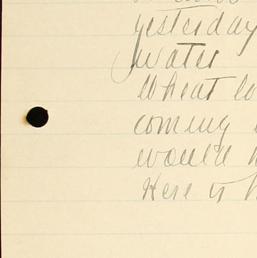 yesterday
water
Wheat lo
coming
would h
Here is h